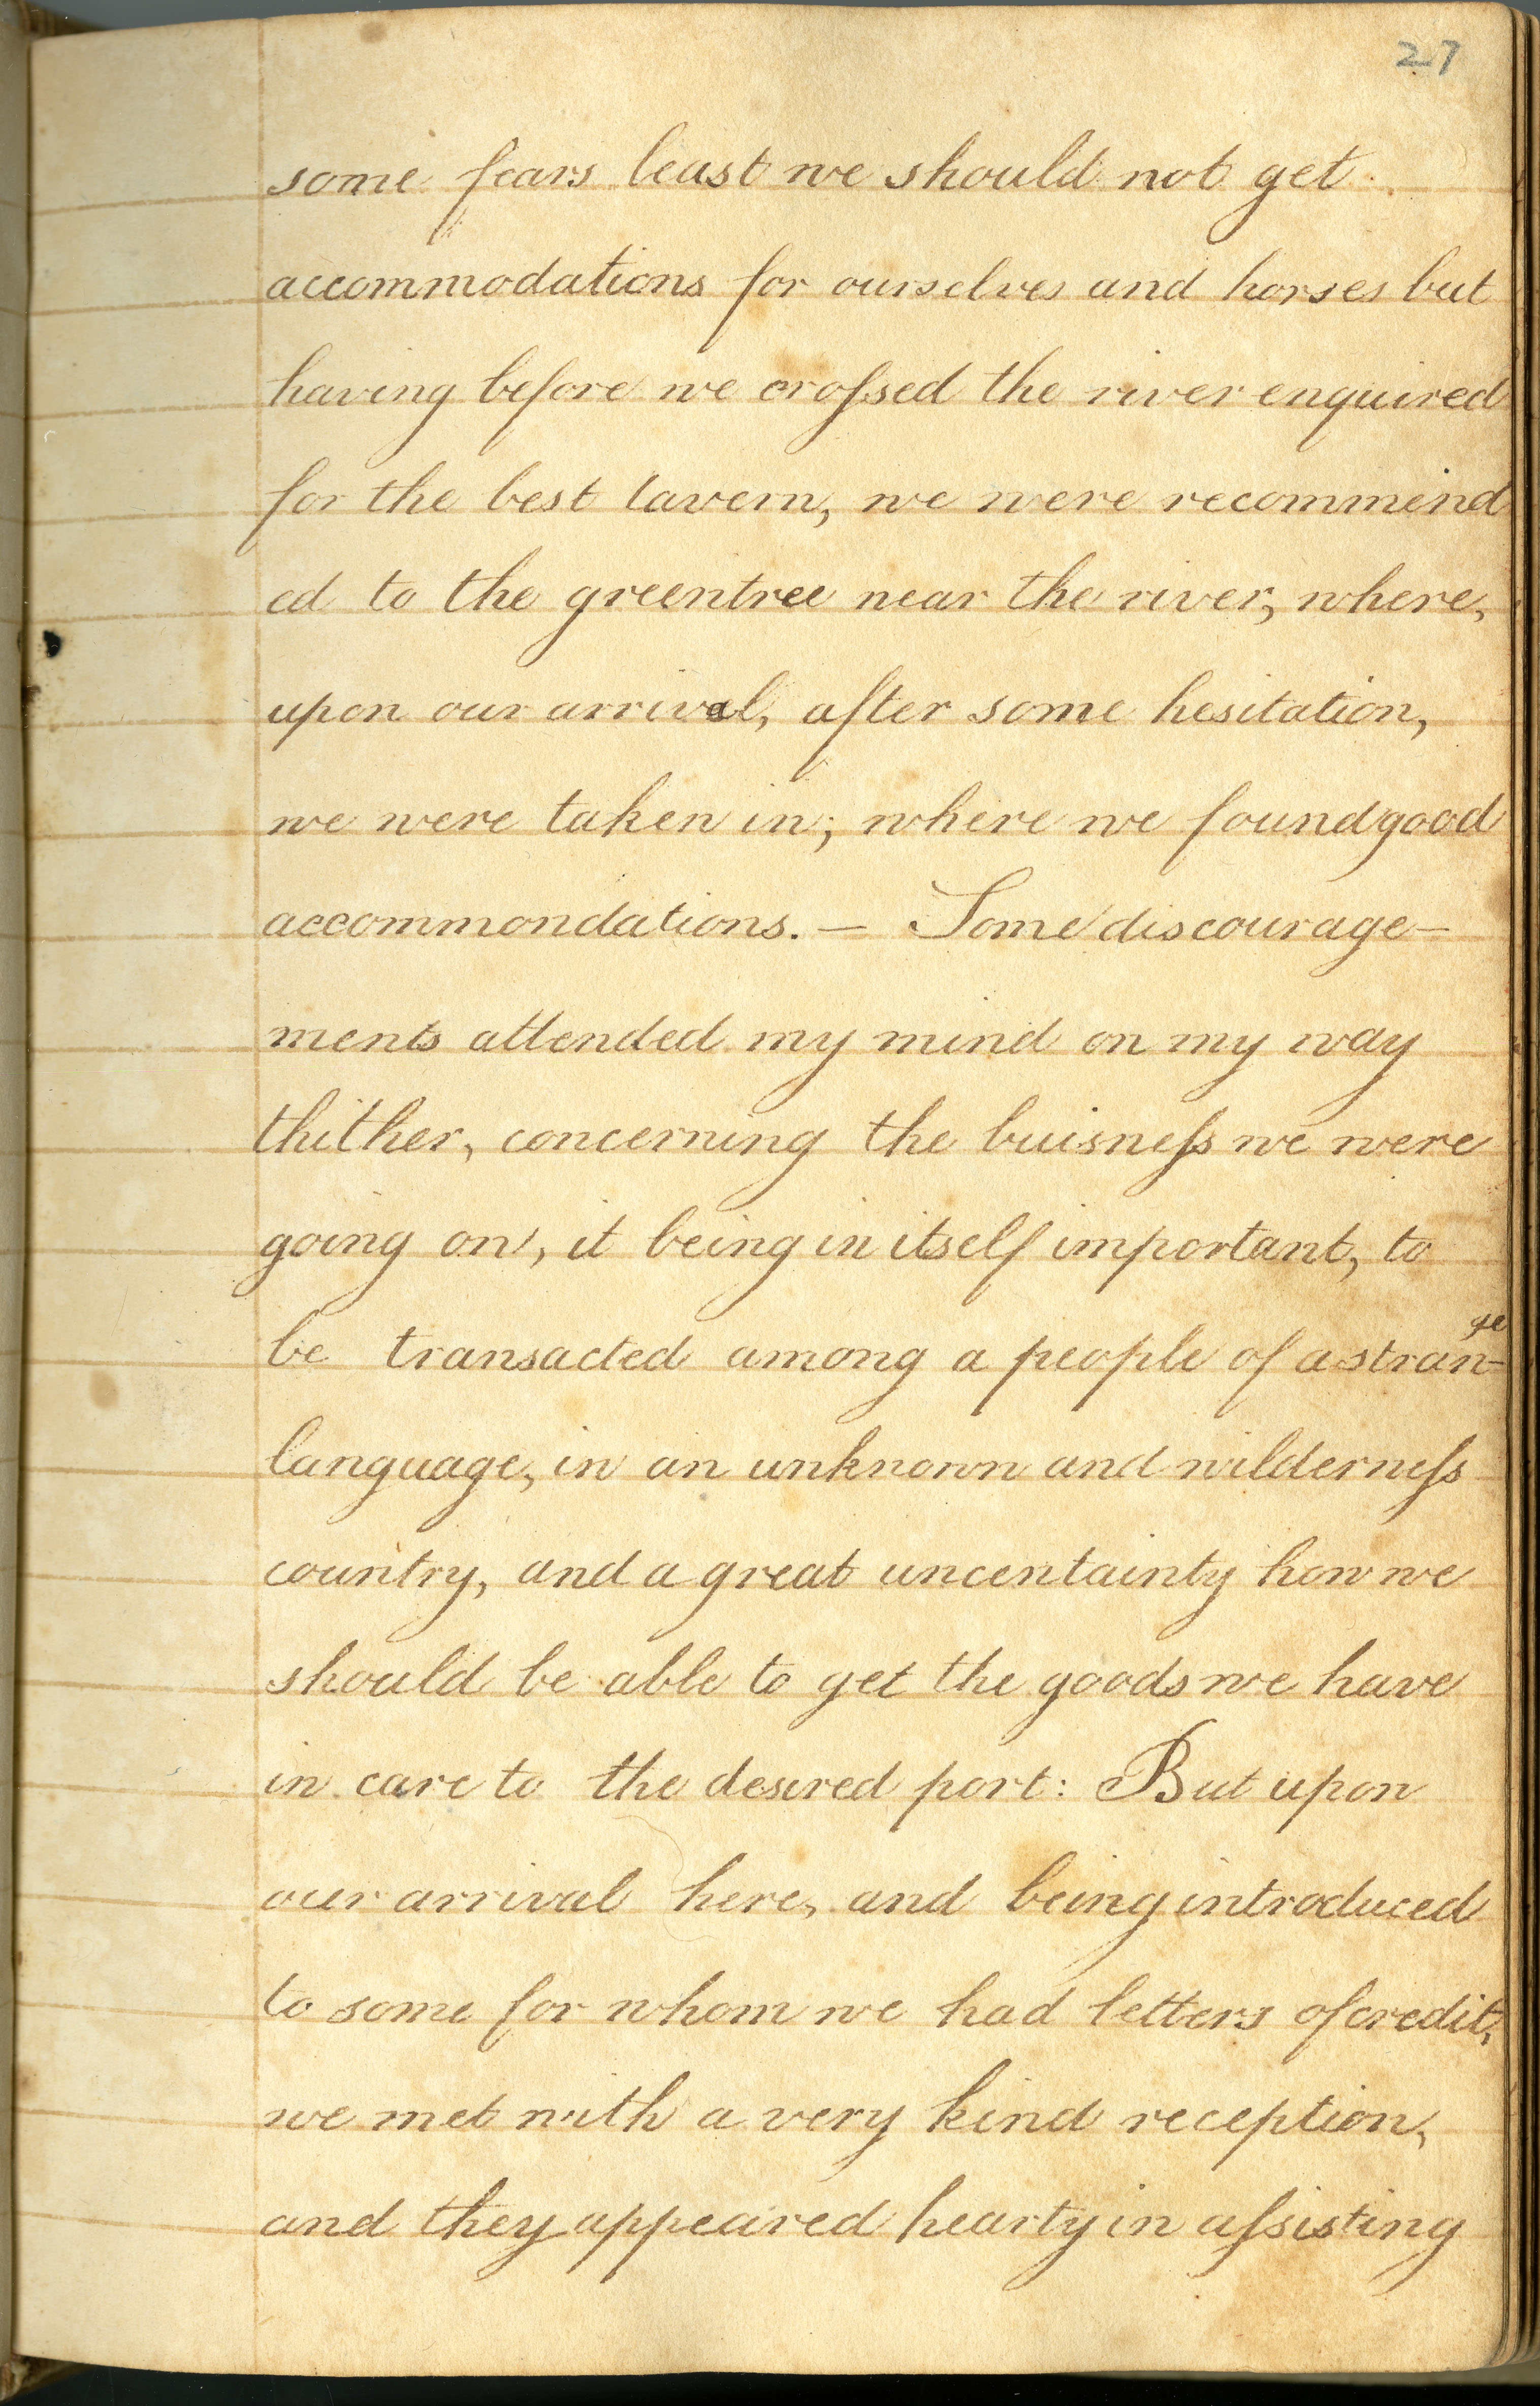 27
some fears least we should not get
accommodations for ourselves and horses but
having before we croſsed the river enquired
for the best tavern, we were recommend
ed to the greentree near the river, where,
upon our arrival, after some hesitation,
we were taken in; where we found good
accommondations. — Some discourage-
ments attended my mind on my way
thither, concerning the buisneſs we were
going on, it being in itself important, to
be transacted among a people of a stran-ge
language, in an unknown and wilderneſs
country, and a great uncentainty how we
should be able to get the goods we have
in care to the desired port: But upon
our arrival here, and being introduced
to some for whom we had letters of credit,
we met with a very kind reception,
and they appeared hearty in aſsisting